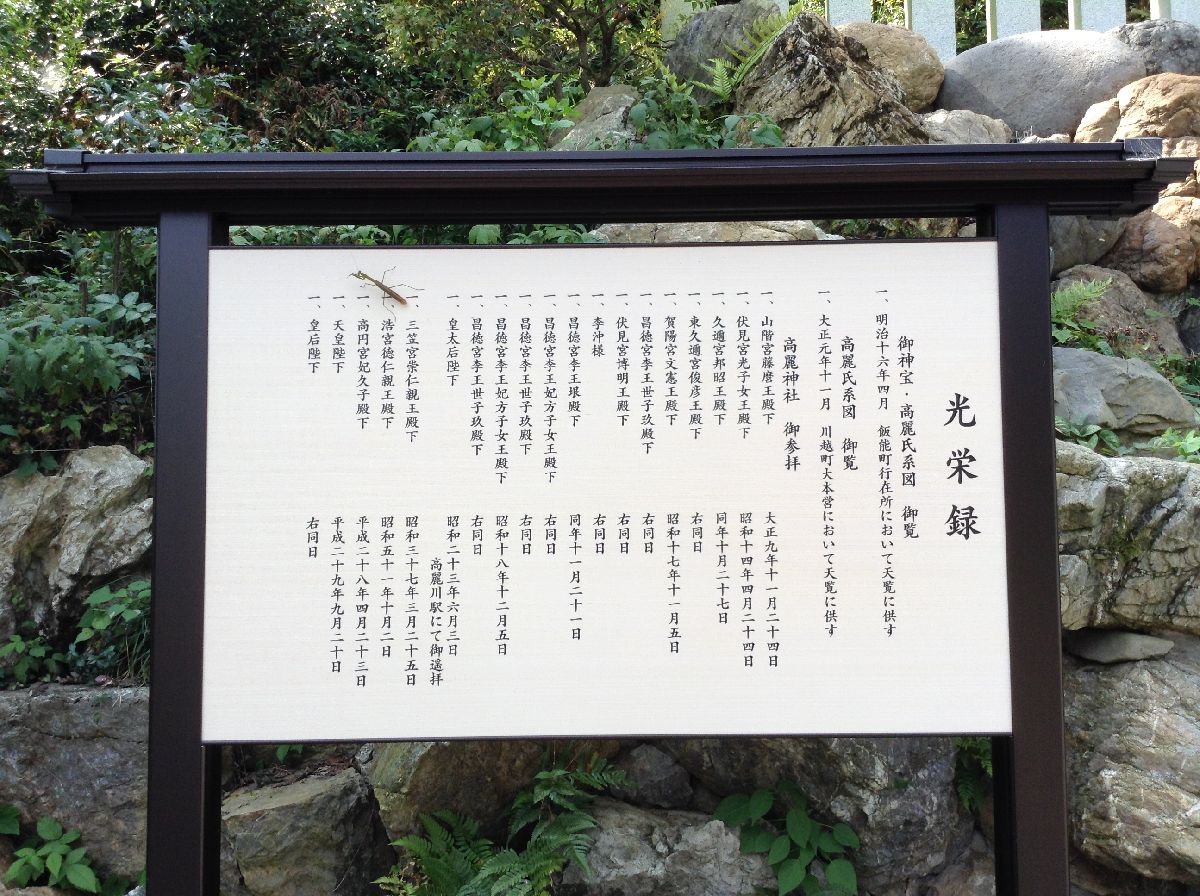 光栄録
御神宝・高麗氏系図　御覧
一、明治十六年四月　飯能町行在所において天覧に供す
高麗氏系図　御覧
一、大正元年十一月　川越町大本営において天覧に供す
高麗神社　御参拝
一、山階宮藤麿王殿下　大正九年十一月二十四日
一、伏見宮光子女王殿下　昭和十四年四月二十四日
一、久邇宮邦昭王殿下　同年十月二十七日
一、東久邇宮俊彦王殿下　右同日
一、賀陽宮文憲王殿下　昭和十七年十一月五日
一、昌徳宮李王世子玖殿下　右同日
一、伏見宮博明王殿下　右同日
一、李沖様　右同日
一、昌徳宮李王垠殿下　同年十一月二十一日
一、昌徳宮李王妃方子女王殿下　右同日
一、昌徳宮李王世子玖殿下　右同日
一、昌徳宮李王妃方子女王殿下　昭和十八年十二月五日
一、昌徳宮李王世子玖殿下　右同日
一、皇太后陛下　昭和二十三年六月三日
高麗川駅にて御遥拝
一、三笠宮崇仁親王殿下　昭和三十七年三月二十五日
一、浩宮徳仁親王殿下　昭和五十一年十月二日
一、高円宮妃久子殿下　平成二十八年四月二十三日
一、天皇陛下　平成二十九年九月二十日
一、皇后陛下　右同日